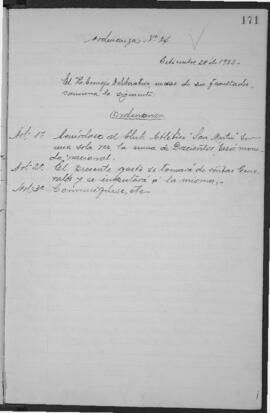 171
Ordenanza Nº 24
Setiembre 28 de 1933.-
El H. Concejo Deliberativo, en uso de sus facultades
sanciona la siguiente
Ordenanza
Art: 1º. Acuérdase al Club Atlético "San Martin" por
una sola vez, la suma de Doscientos pesos mone-
da nacional.
Art: 2º. El presente gasto se tomará de rentas Gene-
rales y se imputará á la misma.
Art: 3º. Comuníquese, etc